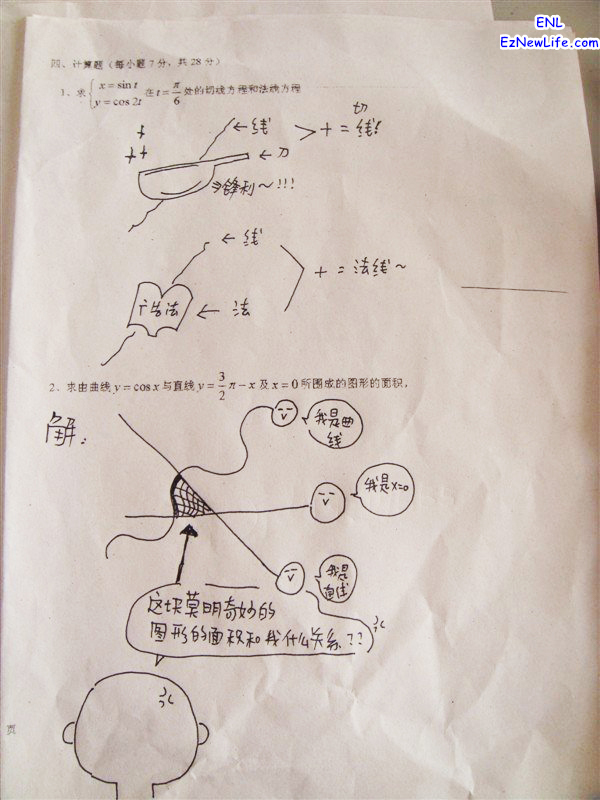 ENL
EzNewLife.com
四、计算题（每小题7分，共28分）
1、求{x=sin t y=cos 2t 在t=π/6处的切线方程和法线方程
切
←线 > + = 线!
← 刀
⇒锋利～!!!
← 线
+ = 法线～
广告法 ← 法
2、求由曲线y=cos x与直线y=3/2π-x及x=0所围成的图形的面积，
解：
我是曲
线
我是x=0
我是
直线
这块莫明奇妙的
图形的面积和我什么关系??
页